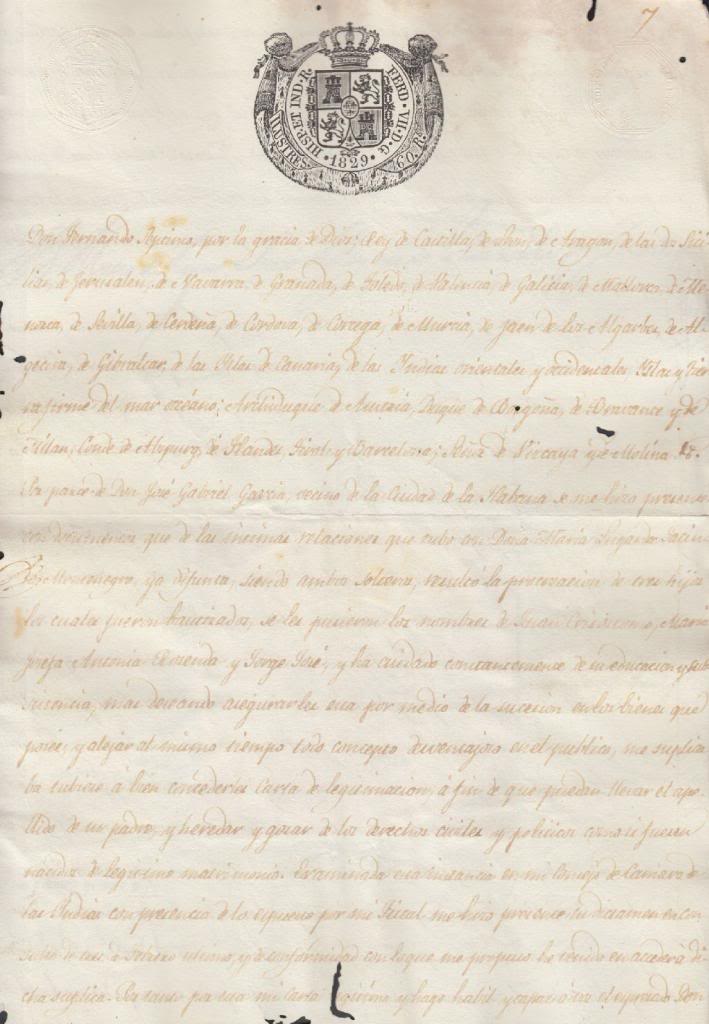 7
SELLO. ILUSTRES HISP. ET IND. R. FERD. VII. D. G. 60. R.
1829
Don Fernando Septimo, por la gracia de Dios; Rey de Castilla, de Leon, de Aragon, de las dos Sici
lias, de Jerusalen, de Navarra, de Granada, de Toledo, de Valencia, de Galicia, de Mallorca, de Me
norca, de Sevilla, de Cerdeña, de Cordova, de Corcega, de Murcia, de Jaen, de los Algarbes, de Al
gecira, de Gibraltar, de las Yslas de Canaria, de las Indias orientales y occidentales Yslas y tier
ra firme del mar oceano; Archiduque de Austria, Duque de Borgoña, de Bravante y de
Milan, Conde de Abspurg, de Flandes, Tirol y Barcelona; Señor de Vizcaya y de Molina &ª
Por parte de Don José Gabriel Garcia, vecino de la Ciudad de la Habana se me hizo presente
con documentos que de las intimas relaciones que tubo con Doña Maria
Montenegro, ya difunta, siendo ambos solteros, resultó la procreacion de tres hijos
los cuales fueron bautizados, se les pusieron los nombres de Juan Crisostomo, Maria
Josefa Antonia Rosenda y Jorge José, y ha cuidado constantemente de su educacion y sub
sistencia, mas deseando asegurarles esta por medio de la sucesion en los bienes que
posee, y alejar al mismo tiempo todo concepto desventajoso en el publico, me suplica
ba tubiese á bien concederles Carta de legitimacion, á fin de que puedan llevar el ape
llido de su padre, y heredar y gozar de los derechos civiles y politicos como si fuesen
nacidos de legitimo matrimonio. Examinada esta instancia en mi Consejo de Camara de
las Yndias con presencia de lo expuesto por mi Fiscal me hizo presente su dictamen en con
sulta de tres de Febrero ultimo, y de conformidad con lo que me propuso he venido en acceder á di
cha suplica. Por tanto por esta mi Carta legitimo y hago habil y capaz al expresado Don